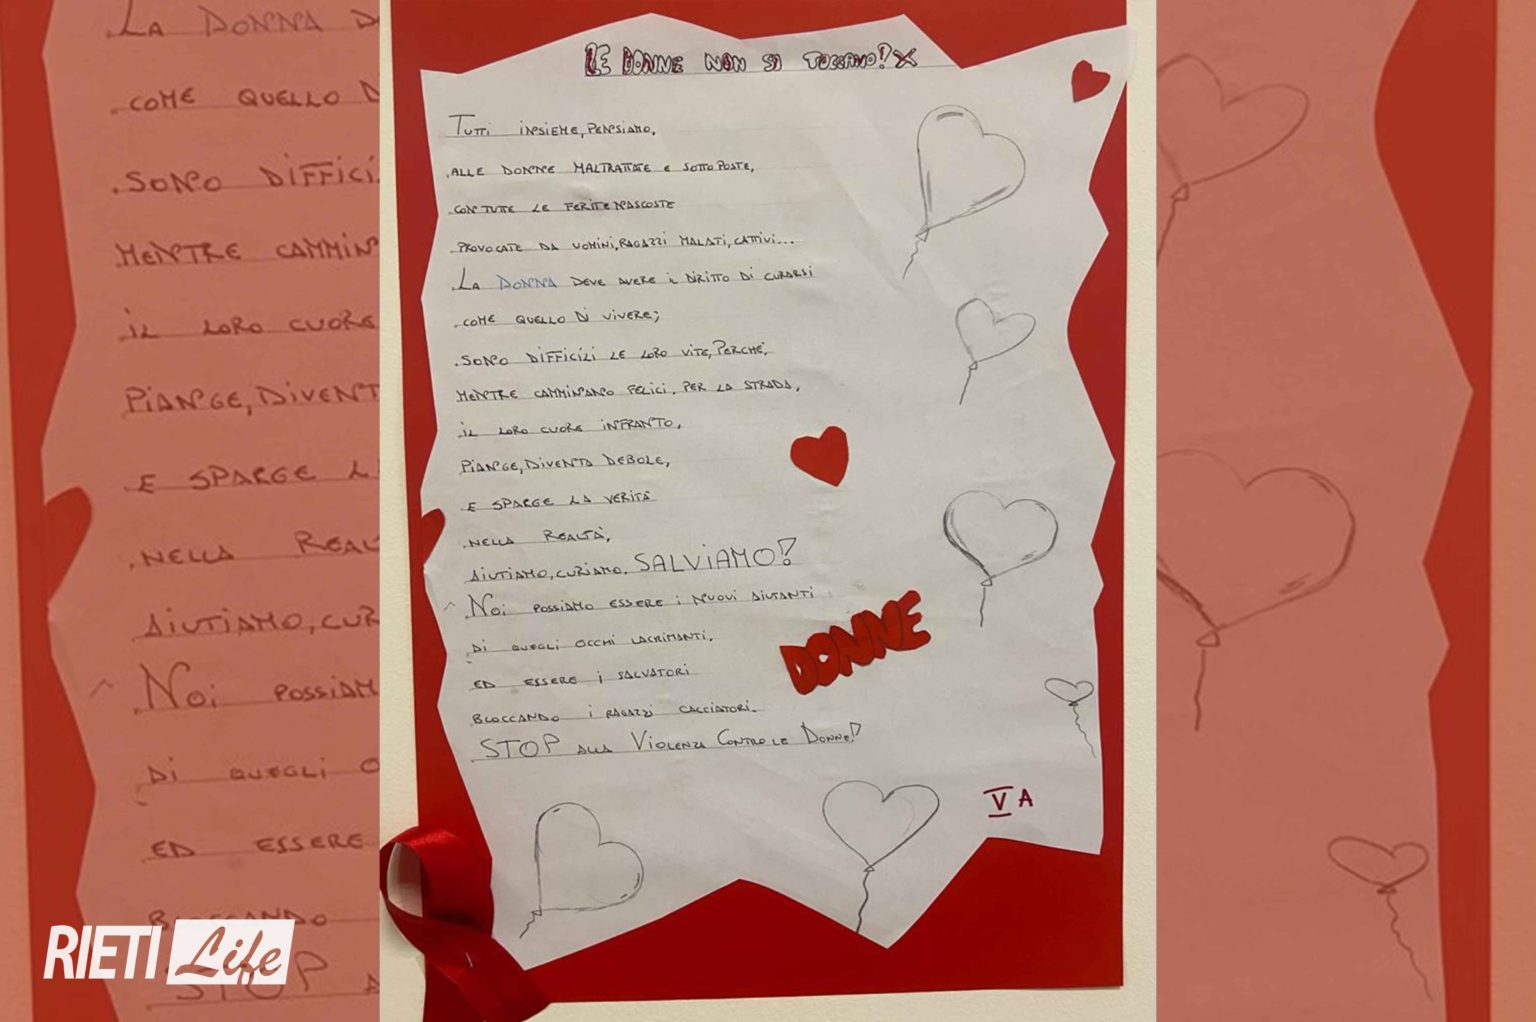 LE DONNE NON SI TOCCANO!
TUTTI INSIEME, PENSIAMO,
ALLE DONNE MALTRATTATE E SOTTOPOSTE,
CON TUTTE LE FERITE NASCOSTE
PROVOCATE DA UOMINI, RAGAZZI MALATI, CATTIVI...
LA DONNA DEVE AVERE IL DIRITTO DI CURARSI
COME QUELLO DI VIVERE;
SONO DIFFICILI LE LORO VITE, PERCHÈ,
MENTRE CAMMINANO FELICI, PER LA STRADA,
IL LORO CUORE INFRANTO,
PIANGE, DIVENTA DEBOLE,
E SPARGE LA VERITÀ
NELLA REALTÀ,
AIUTIAMO, CURIAMO, SALVIAMO!
NOI POSSIAMO ESSERE I NUOVI AIUTANTI
DI QUEGLI OCCHI LACRIMANTI,
ED ESSERE I SALVATORI
BLOCCANDO I RAGAZZI CACCIATORI.
STOP ALLA VIOLENZA CONTRO LE DONNE!
DONNE
V A
RIETI Life